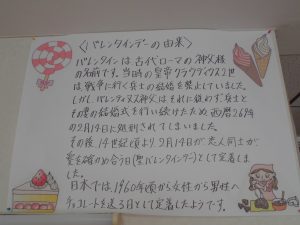 〈バレンタインデーの由来〉
バレンタインは古代ローマの神父様
の名前です。当時の皇帝クラウディウス2世
は、戦争に行く兵士の結婚を禁止していました。
しかし、バレンティヌス神父はそれに従わず、兵士と
その妻の結婚式を行い続けたため、西暦269年
の2月14日に処刑されてしまいました。
その後、14世紀頃より、2月14日が恋人同士が
愛を確かめ合う日(聖バレンタインデー)として定着しま
した。
日本では、1960年頃から女性から男性へ
チョコレートを送る日として定着したようです。